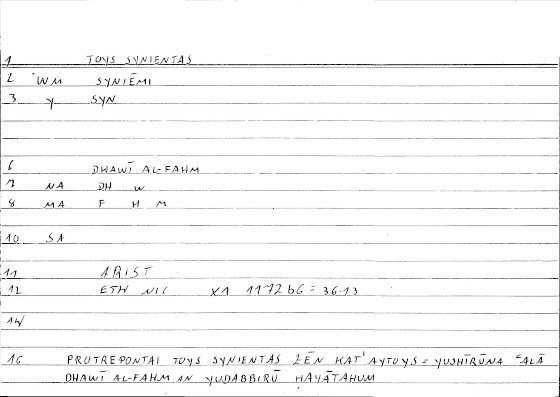 1 TOYS SYNIENTAS
2 WM SYNIĒMI
3 Y SYN
6 DHAWĪ AL-FAHM
7 NA DH W
8 MA F H M
10 SA
11 ARIST
12 ETH NIC X1 1172 b6 = 36.13
14
16 PROTREPONTAI TOYS SYNIENTAS ZĒN KAT' AYTOYS = YUSHĪRŪNA ʿALĀ
DHAWĪ AL-FAHM AN YUDABBIRŪ ḤAYĀTAHUM